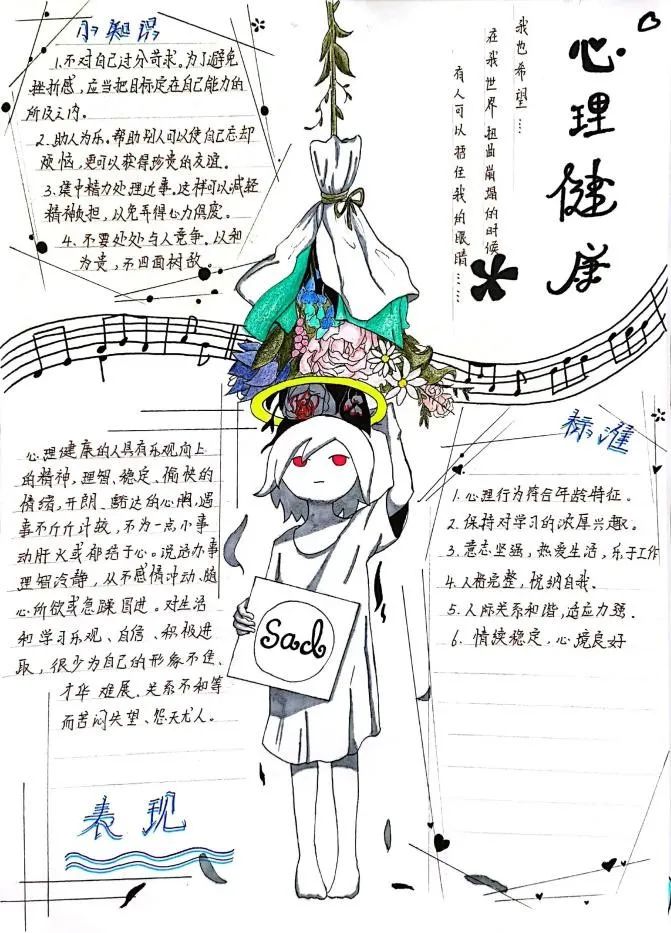 小知识
1.不对自己过分苛求。为了避免
挫折感，应当把目标定在自己能力的
所及之内。
2.助人为乐。帮助别人可以使自己忘却
烦恼，更可以获得珍贵的友谊。
3.集中精力处理近事。这样可以减轻
精神负担，以免弄得心力俱废。
4.不要处处与人竞争。以和
为贵，不四面树敌。
心理健康
我也希望……
在我世界扭曲崩塌的时候
有人可以捂住我的眼睛……
心理健康的人具有乐观向上
的精神，理智、稳定、愉快的
情绪，开朗、豁达的心胸，遇
事不斤斤计较，不为一点小事
动肝火或郁结于心。说话办事
理智冷静，从不感情冲动、随
心所欲或急躁冒进。对生活
和学习乐观、自信、积极进
取，很少为自己的形象不佳、
才华难展、关系不和等
而苦闷失望、怨天尤人。
表现
Sad
标准
1.心理行为符合年龄特征。
2.保持对学习的浓厚兴趣。
3.意志坚强，热爱生活，乐于工作
4.人格完整，悦纳自我.
5.人际关系和谐，适应力强.
6.情绪稳定，心境良好